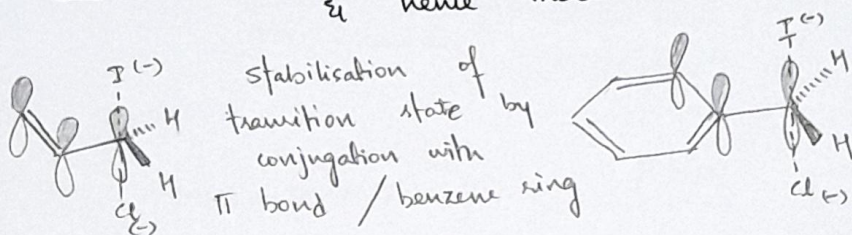 & hence
I (-)
H
H
Cl
(-)
stabilisation of
transition state by
conjugation with
π bond / benzene ring
I (-)
H
H
Cl (-)